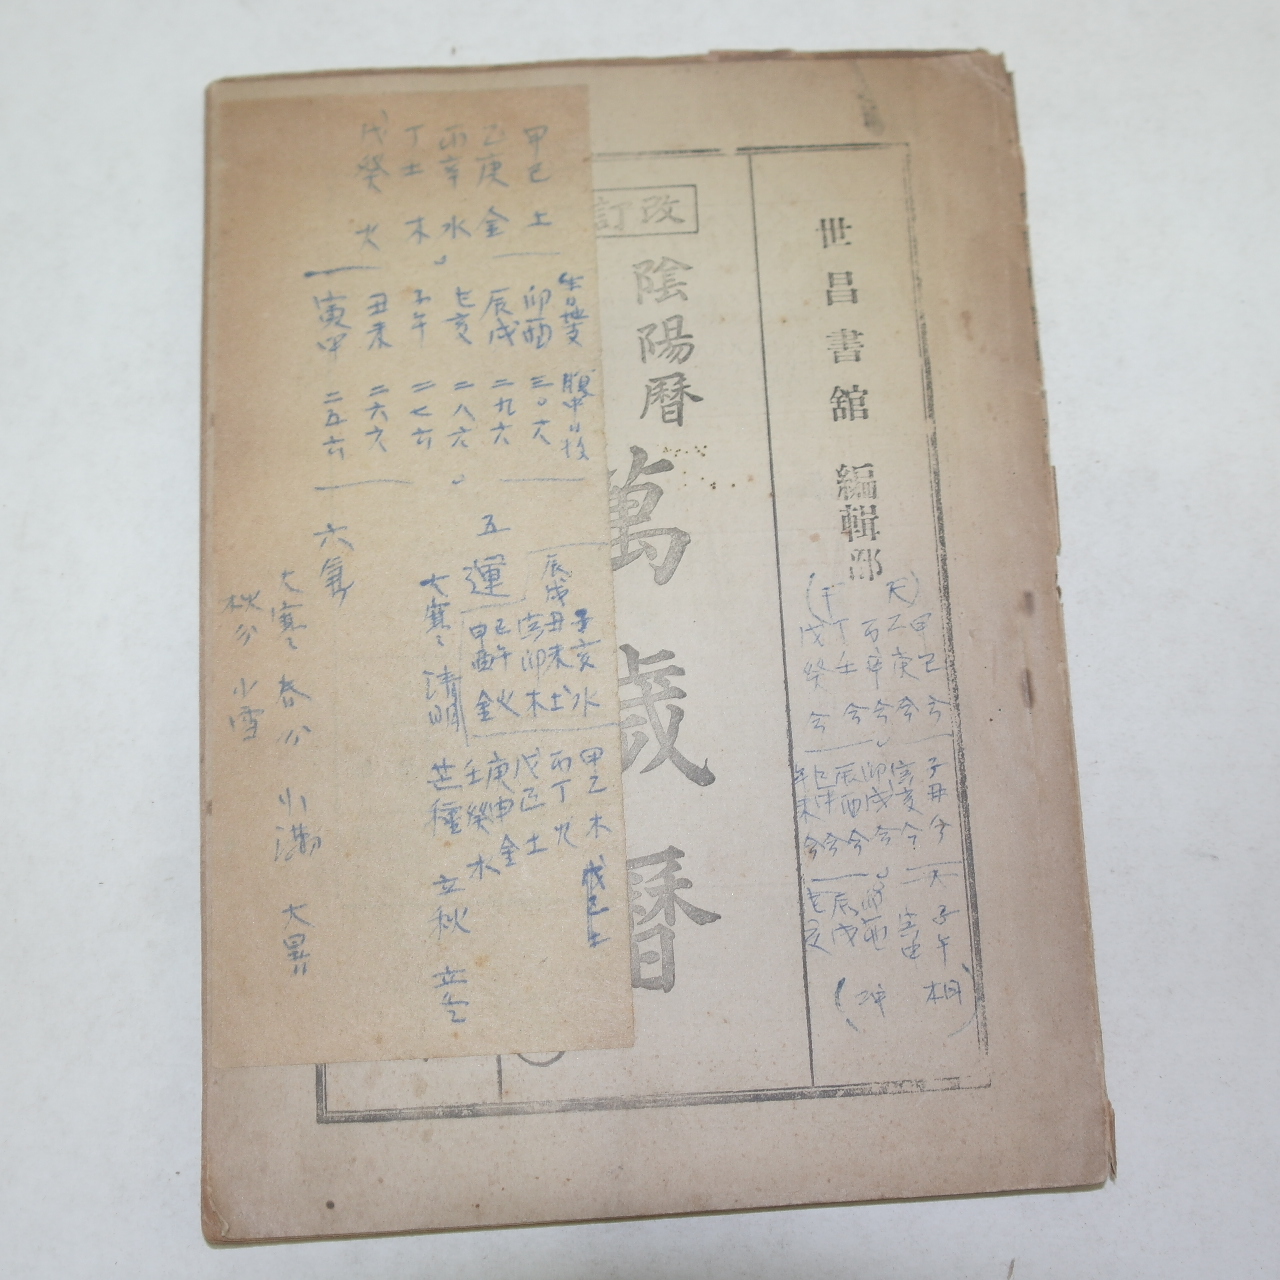 世昌書舘 編輯部
改訂
陰陽曆
萬歲曆
天干
甲己合
乙庚合
丙辛合
丁壬合
戊癸合
子丑合
寅亥合
卯戌合
辰酉合
巳申合
午未合
子午
寅申
卯酉
辰戌
巳亥
相冲
甲己 土
乙庚 金
丙辛 水
丁土 木
戊癸 火
生日地支 腹中日校
卯酉 三〇六
辰戌 二九六
巳亥 二八六
子午 二七六
丑未 二六六
寅申 二五六
五運
子亥水
丑未土
辰戌
寅卯木
巳午火
申酉金
甲乙木
丙丁火
戊己土
庚申金
壬癸水
戊己土
大寒 清明 芒種 立秋 立冬
六氣
大寒 春分 小滿 大暑
秋分 小雪